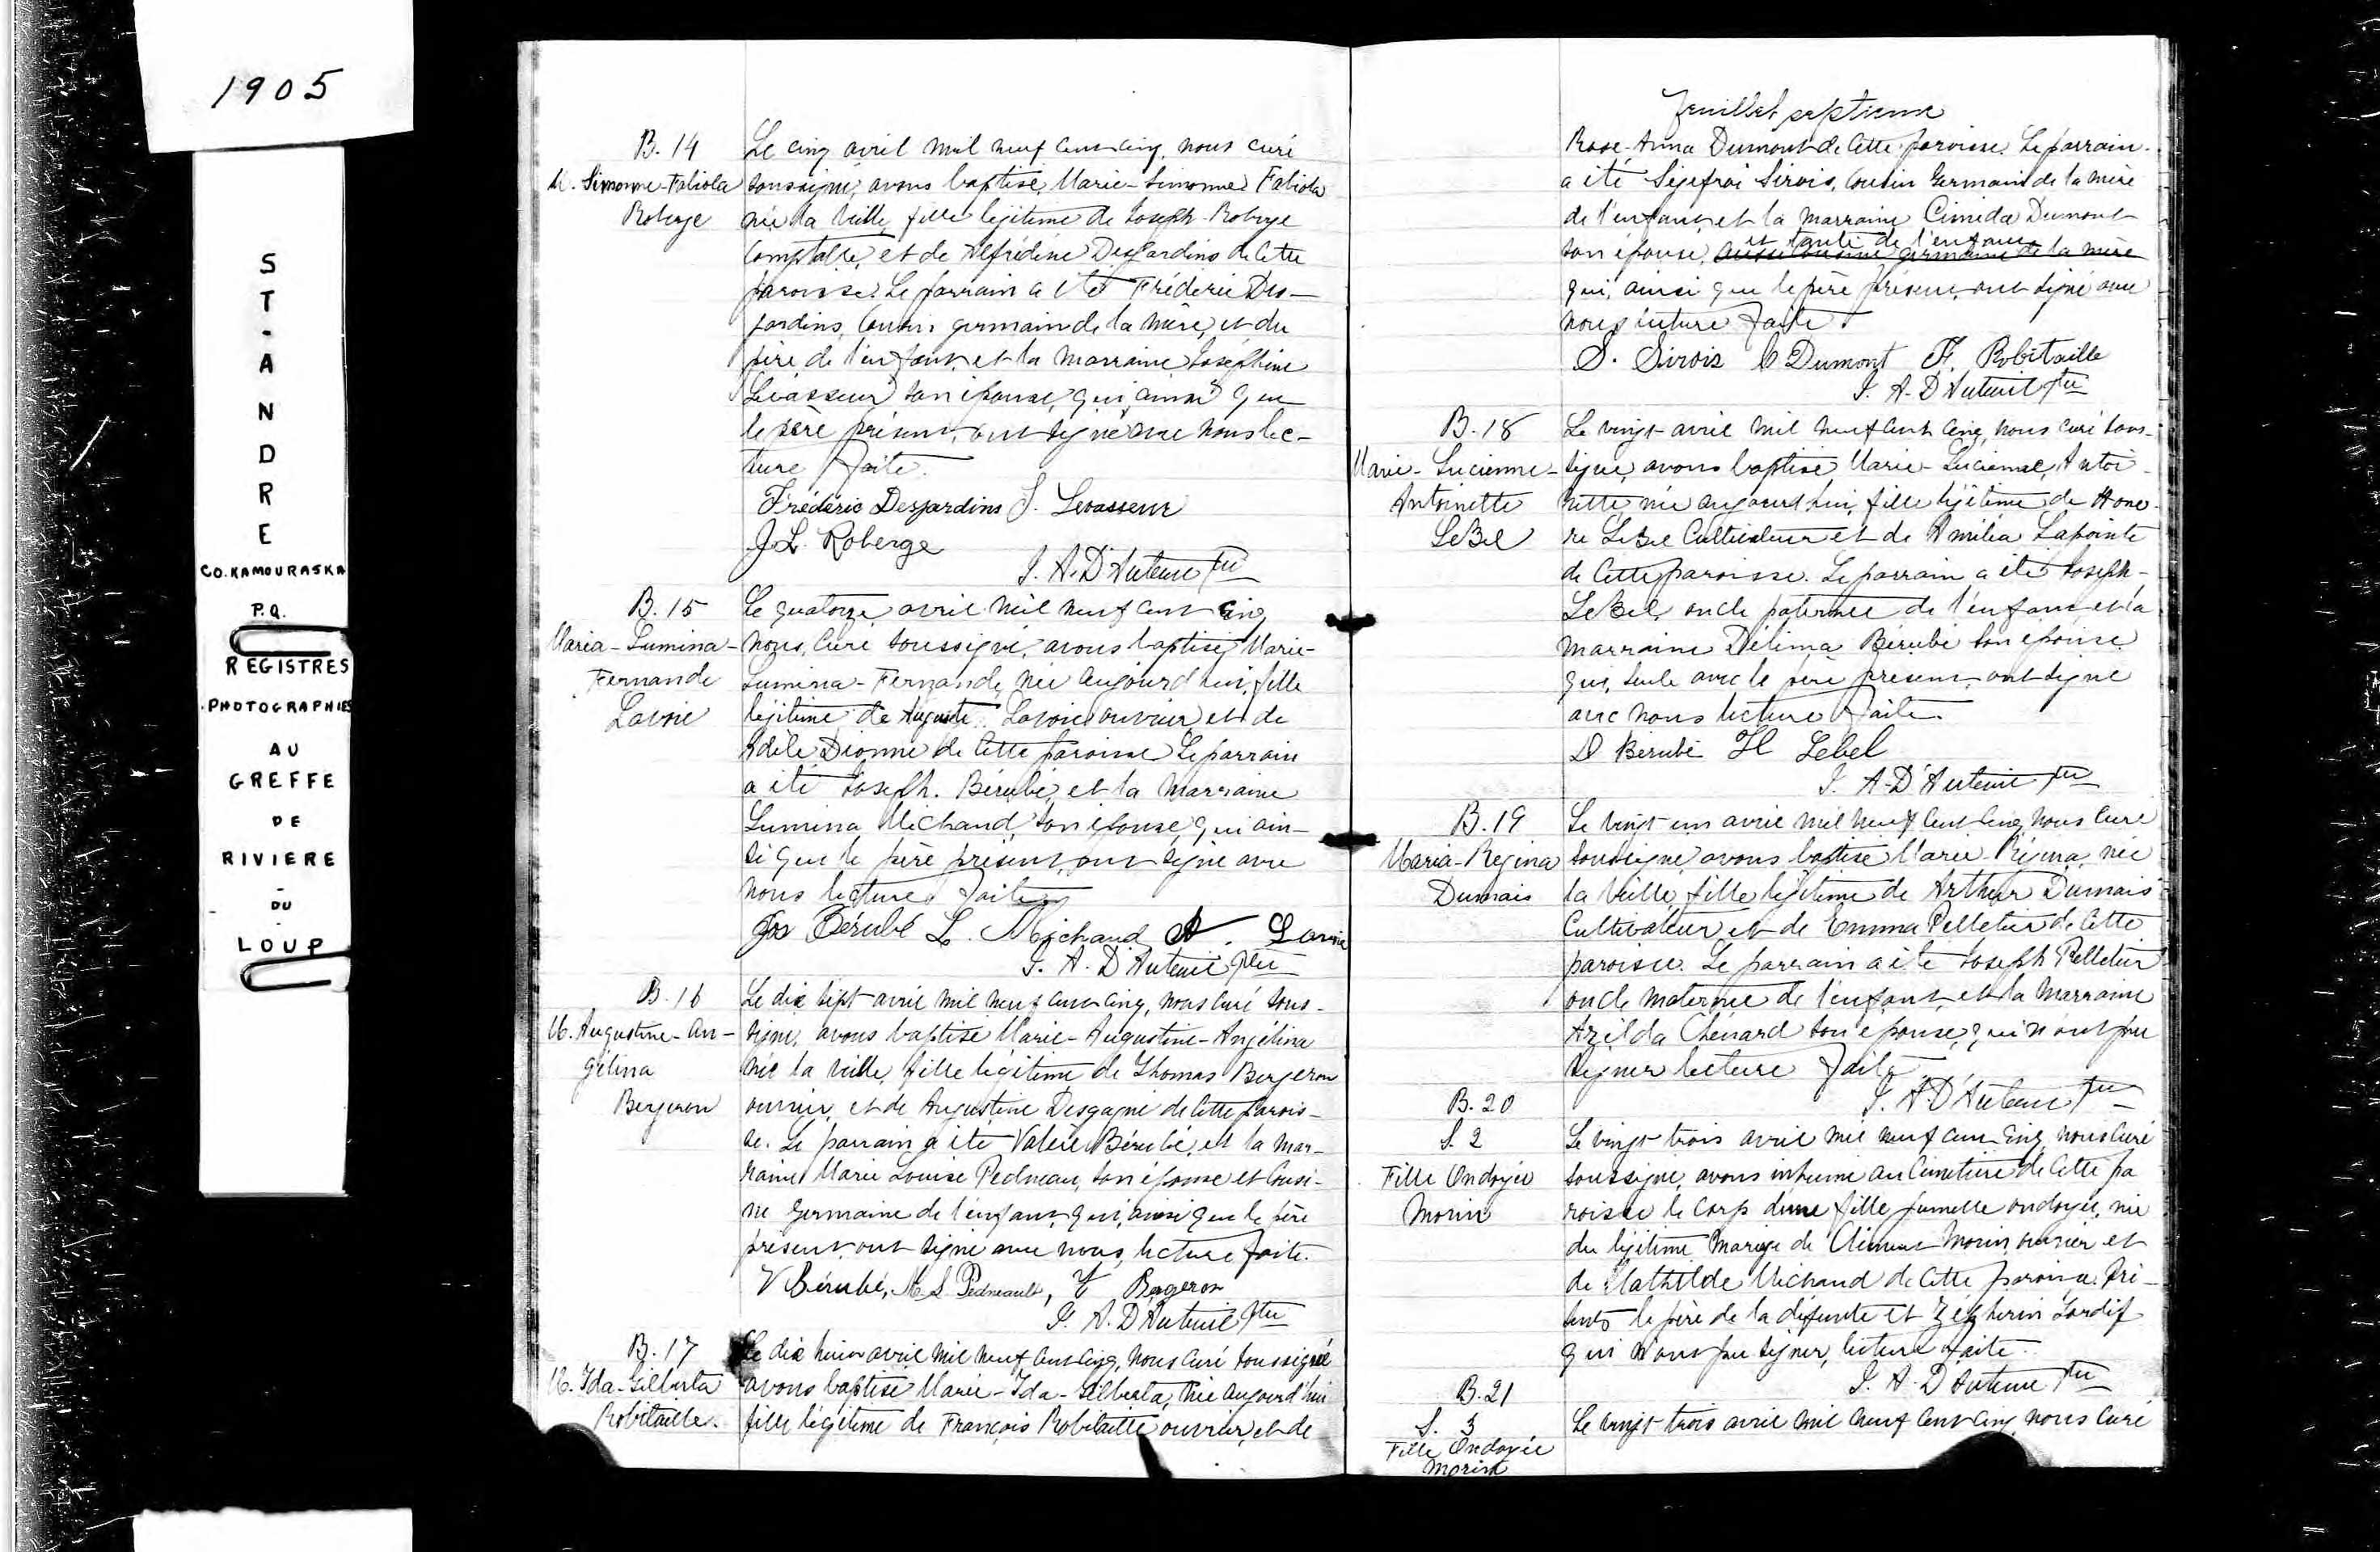 1905
ST-ANDRE
CO. KAMOURASKA
P.Q.
REGISTRES
PHOTOGRAPHIES
AU
GREFFE
DE
RIVIERE
-
DU
-
LOUP
B. 14
M. Simonne-Fabiola
Roberge
Le cinq avril mil neuf cent cinq, nous curé
soussigné, avons baptisé, Marie-Simonne Fabiola
née la veille, fille légitime de Joseph Roberge
comptable, et de Alfrédine Desjardins de cette
paroisse. Le parrain a été Fréderic Des-
jardins, cousin germain de la mère, et du
père de l'enfant, et la marraine Joséphine
Levasseur son épouse, qui, ainsi que
le père présent, ont signé avec nous lec-
ture faite.
Fréderic Desjardins J. Levasseur
J. L. Roberge
J. A. D'Auteuil Ptre
B. 15
Maria-Lumina-
Fernande
Lavoie
Le quatorze avril mil neuf cent cinq
nous, curé soussigné, avons baptisé, Marie-
Lumina-Fernande, née aujourd'hui, fille
légitime de Auguste Lavoie ouvrier et de
Adèle Dionne de cette paroisse. Le parrain
a été Joseph. Bérubé, et la marraine
Lumina Michaud, son épouse, qui ain-
si que le père présent, ont signé avec
nous lecture faite
Jos Bérubé L. Michaud A. Lavoie
J. A. D'Auteuil Ptre
B. 16
M. Augustine-An-
gélina
Bergeron
Le dix sept avril mil neuf cent cinq, nous curé sous-
signé, avons baptisé Marie-Augustine-Angélina
née la veille, fille légitime de Thomas Bergeron
ouvrier, et de Augustine Desgagné de cette parois-
se. Le parrain a été Valère Bérubé, et la mar-
raine Marie Louise Pedneau, son épouse et cousi-
ne germaine de l'enfant, qui, ainsi que le père
présent, ont signé avec nous, lecture faite.
V Bérubé, M. L Pedneault, T Bergeron
J. A. D'Auteuil Ptre
B. 17
M. Ida-Gilberta
Robitaille.
Le dix huit avril mil neuf cent cinq, nous curé soussigné
avons baptisé Marie-Ida-Gilberta, née aujourd'hui
fille légitime de François Robitaille ouvrier, et de
feuillet septième
Rose-Anna Dumont de cette paroisse. Le parrain
a été Sigefroi Sirois, cousin germain de la mère
de l'enfant, et la marraine Dumont
et tante de l'enfant
son épouse, aussi cousine germaine de la mère
qui, ainsi que le père présent, ont signé avec
nous lecture faite.
S. Sirois C Dumont F. Robitaille
J. A. D'Auteuil Ptre
B. 18
Marie-Lucienne-
Antoinette
LeBel
Le vingt avril mil neuf cent cinq, nous curé sous-
signé, avons baptisé Marie-Lucienne, Antoi-
nette, née aujourd'hui, fille légitime de Hono-
ré LeBel Cultivateur et de Amélia Lapointe
de cette paroisse. Le parrain a été Joseph-
LeBel, oncle paternel de l'enfant, et la
marraine Délima Bérubé son épouse
qui, seule avec le père présent, ont signé
avec nous lecture faite.
D Bérubé H Lebel
J. A. D'Auteuil Ptre
B. 19
Maria-Regina
Dumais
Le vingt un avril mil neuf cent cinq, nous curé
soussigné, avons baptisé Marie-Régina, née
la veille, fille légitime de Arthur Dumais
Cultivateur et de Emma Pelletier de cette
paroisse. Le parrain a été Joseph Pelletier
oncle maternel de l'enfant, et la marraine
Azilda Chénard son épouse, qui n'ont pu
signer lecture faite
J. A. D'Auteuil Ptre
B. 20
S. 2
Fille Ondoyée
Morin
Le vingt trois avril mil neuf cent cinq, nous curé
soussigné, avons inhumé au cimetière de cette pa
roisse le corps d'une fille jumelle ondoyée, née
du légitime mariage de Clément Morin ouvrier et
de Mathilde Michaud de cette paroisse. Pré-
sents le père de la défunte et Zépherin Lardif
qui n'ont pu signer, lecture faite.
J. A. D'Auteuil Ptre
B. 21
S. 3
Fille Ondoyée
Morin
Le vingt trois avril mil neuf cent cinq, nous curé